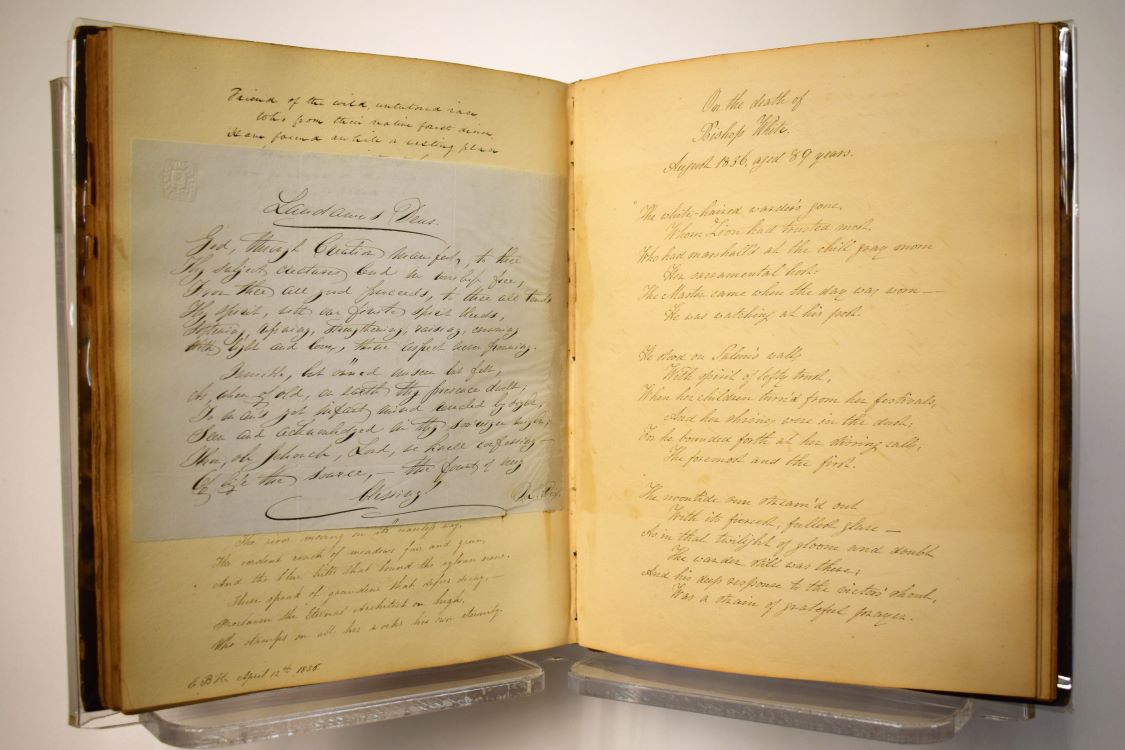 Friend of the wild, untutored
Who from their native forest
Have found awhile a resting place
Laudamus Deus.
God, through Creation manifest, to thee
Thy subject creatures bend in worship free,
From thee all good proceeds, to thee all tends
Thy spirit, with our finite spirit blends,
Softening, strengthening, raising, crowning
With light and love, thine aspect never frowning.
Invisible, but owned unseen but felt,
As when of old, on earth thy presence dwelt;
To man's yet infant mind
Seen and acknowledged in thy sovereign
Thou, oh Jehovah, Lord, we kneel confessing —
Of life the source, — the fount of every
blessing!
The river moving on its way,
The verdant reach of meadows fair and green,
And the blue hills that bound the sylvan scene,
These speak of grandeur that defies decay, —
Proclaim the Eternal Architect on high,
Who stamps on all his works his own eternity.
April 12th 1836.
On the death of
Bishop White.
August 1836, aged 89 years.
The white-haired warder's gone,
Whom Zion had trusted most,
Who had marshall'd at the chill gray morn
Her sacramental host:
The Master came when the day was worn —
He was watching at his post.
He stood on Salem's walls
With spirit of lofty trust,
When her children turn'd from her festivals,
And her shrines were in the dust;
For he bounded forth at her stirring calls,
The foremost and the first.
The noontide sun stream'd out
With its fiercest, fullest glare —
As in that twilight of gloom and doubt
The warder still was there;
And his deep response to the victors' shout,
Was a strain of grateful prayer.